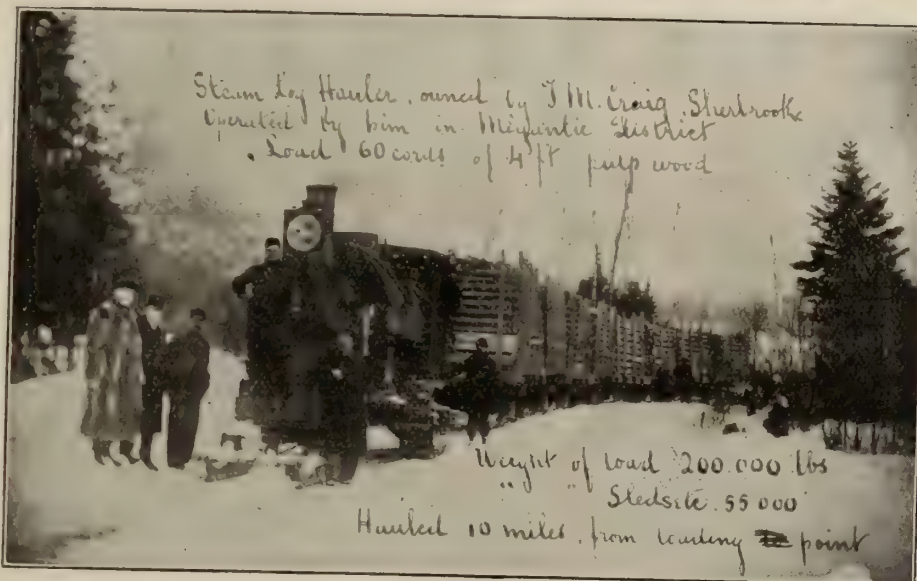 Steam Log Hauler, owned by T M. Craig, Sherbrooke
Operated by him in Megantic District
Load 60 cords of 4 ft pulp wood
Weight of load 200.000 lbs
" " Sleds etc. 55 000
Hauled 10 miles, from loading point